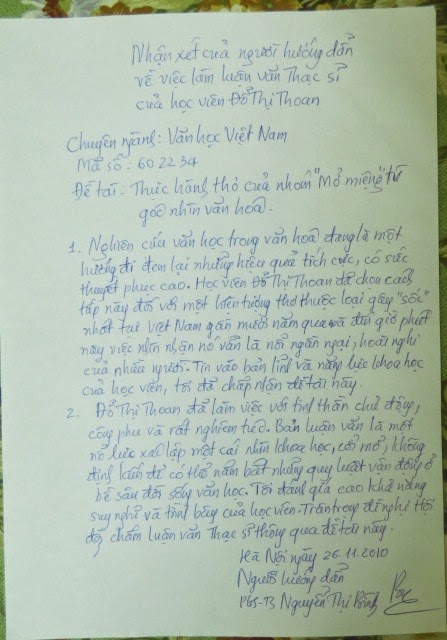 Nhận xét của người hướng dẫn
về việc làm luận văn Thạc sĩ
của học viên Đỗ Thị Thoan
Chuyên ngành: Văn học Việt Nam
Mã số: 60 22 34
Đề tài: Thực hành thơ của nhóm "Mở miệng" từ
góc nhìn văn hoá.
1. Nghiên cứu văn học trong văn hoá đang là một
hướng đi đem lại những hiệu quả tích cực, có sức
thuyết phục cao. Học viên Đỗ Thị Thoan đã chọn cách
tiếp này đối với một hiện tượng thơ thuộc loại gây "sốc"
nhất tại Việt Nam gần mười năm qua mà đến giờ phút
này việc nhìn nhận nó vẫn là nỗi ngần ngại, hoài nghi
của nhiều người. Tin vào bản lĩnh và năng lực khoa học
của học viên, tôi đã chấp nhận đề tài này.
2. Đỗ Thị Thoan đã làm việc với tinh thần chủ động,
công phu và rất nghiêm túc. Bản luận văn là một
nỗ lực xác lập một cái nhìn khoa học, cởi mở, không
định kiến để có thể nắm bắt những quy luật vận động ở
bề sâu đời sống văn học. Tôi đánh giá cao khả năng
suy nghĩ và trình bày của học viên. Trân trọng đề nghị Hội
đồng chấm luận văn Thạc sĩ thông qua đề tài này.
Hà Nội ngày 26.11.2010
Người hướng dẫn
PGS-TS Nguyễn Thị Bình